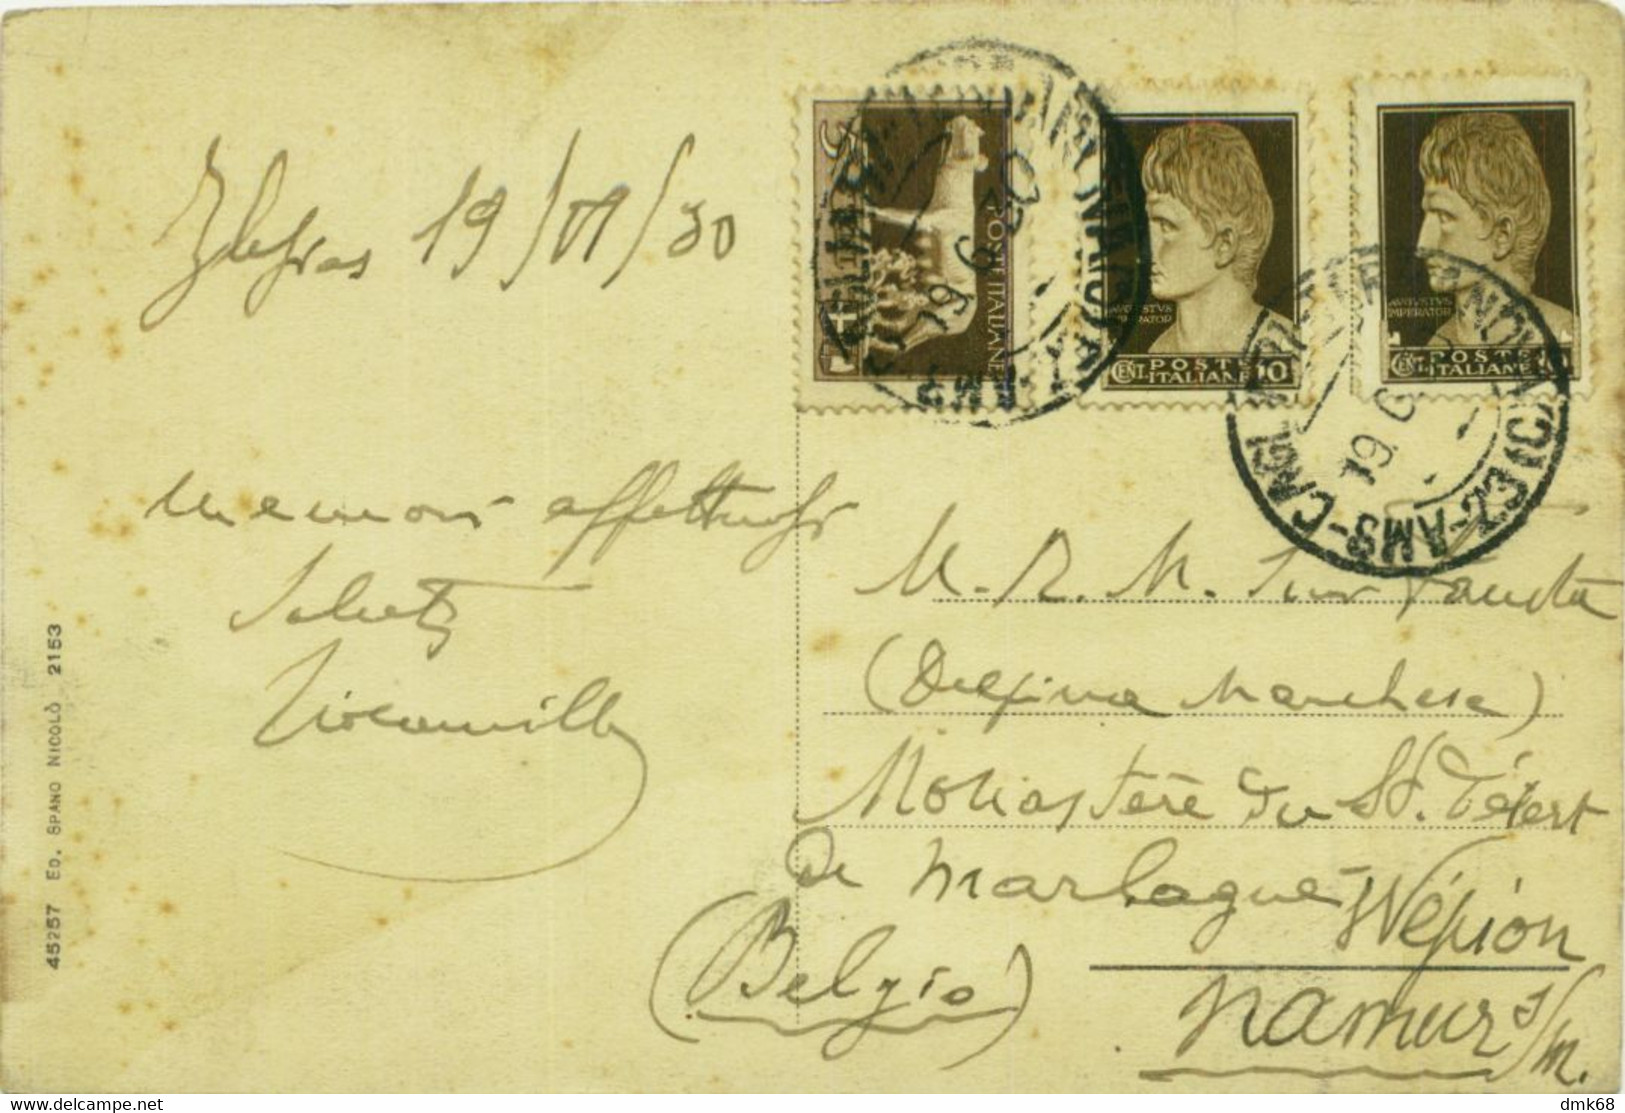 Iglesias 19/VI/30
affettuosi
Saluti
45257 ED. SPANO NICOLÒ 2153
POSTE ITALIANE
AVGVSTVS
IMPERATOR
CENT. POSTE ITALIANE 10
AVGVSTVS
IMPERATOR
CENT. POSTE ITALIANE 10
19 6
19 6
M. R. M. Fausta
(Delfina Marchesa)
Monastère du St. Désert
de Marlagne Wépion
(Belgio) Namur s/m.
delcampe.net
dmk68